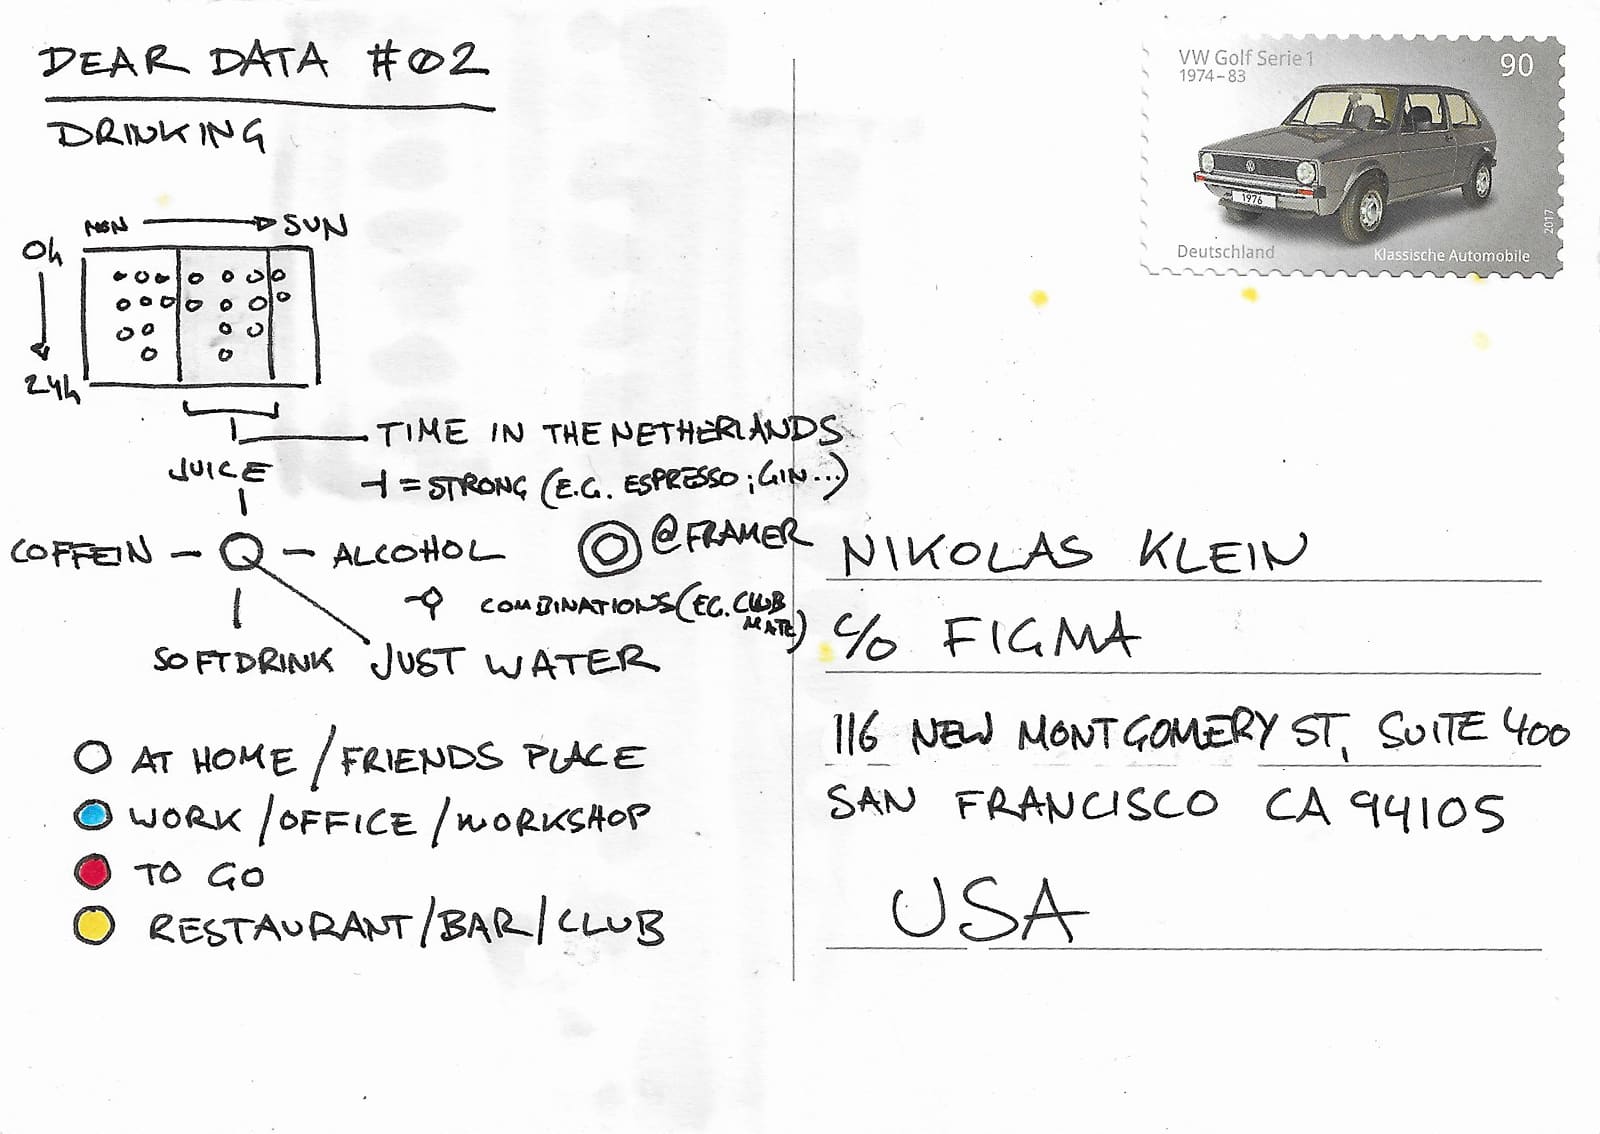 DEAR DATA #02
DRINKING
MON SUN
0h
24h
TIME IN THE NETHERLANDS
JUICE
⊣ = STRONG (E.G. ESPRESSO; GIN...)
COFFEIN — — ALCOHOL
@FRAMER
COMBINATIONS (EG. CLUB
MATE)
SOFTDRINK
JUST WATER
AT HOME / FRIENDS PLACE
WORK / OFFICE / WORKSHOP
TO GO
RESTAURANT / BAR / CLUB
VW Golf Serie 1
1974–83
90
1976
2017
Deutschland
Klassische Automobile
NIKOLAS KLEIN
C/O FIGMA
116 NEW MONTGOMERY ST, SUITE 400
SAN FRANCISCO CA 94105
USA